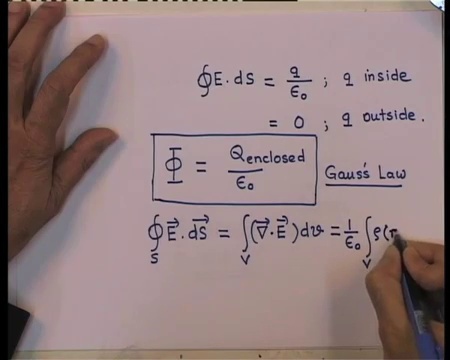 ∮E.dS = q/ε₀ ; q inside
= 0 ; q outside.
Φ = Qenclosed/ε₀
Gauss's Law
∮_S E⃗.dS⃗ = ∫_V (∇⃗.E⃗)dv = 1/ε₀ ∫_V ρ(r